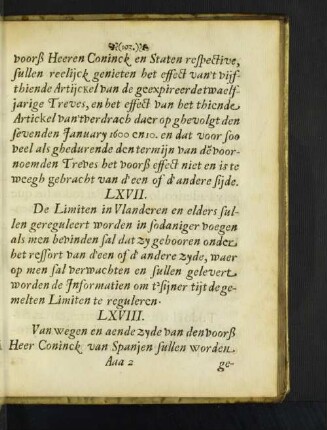 (102.)
voorß Heeren Coninck en Staten respective,
sullen reelijck genieten het effect van't vijf-
thiende Artijckel van de geexpireerde twaelf-
jarige Treves, en het effect van het thiende
Artickel van't verdrach daer op ghevolgt den
sevenden January 1600 en 10. en dat voor soo
veel als ghedurende den termijn van dē voor-
noemden Treves het voorß effect niet en is te
weegh gebracht van d'een of d'andere sijde.
LXVII.
De Limiten in Vlanderen en elders sul-
len gereguleert worden in sodaniger voegen
als men bevinden sal dat zy gehooren onder
het ressort van d'een of d'andere zyde, waer
op men sal verwachten en sullen gelevert
worden de Informatien om t'sijner tijt de ge-
melten Limiten te reguleren.
LXVIII.
Van wegen en aen de zyde van den voorß
Heer Coninck van Spanjen sullen worden
Aaa 2 ge-